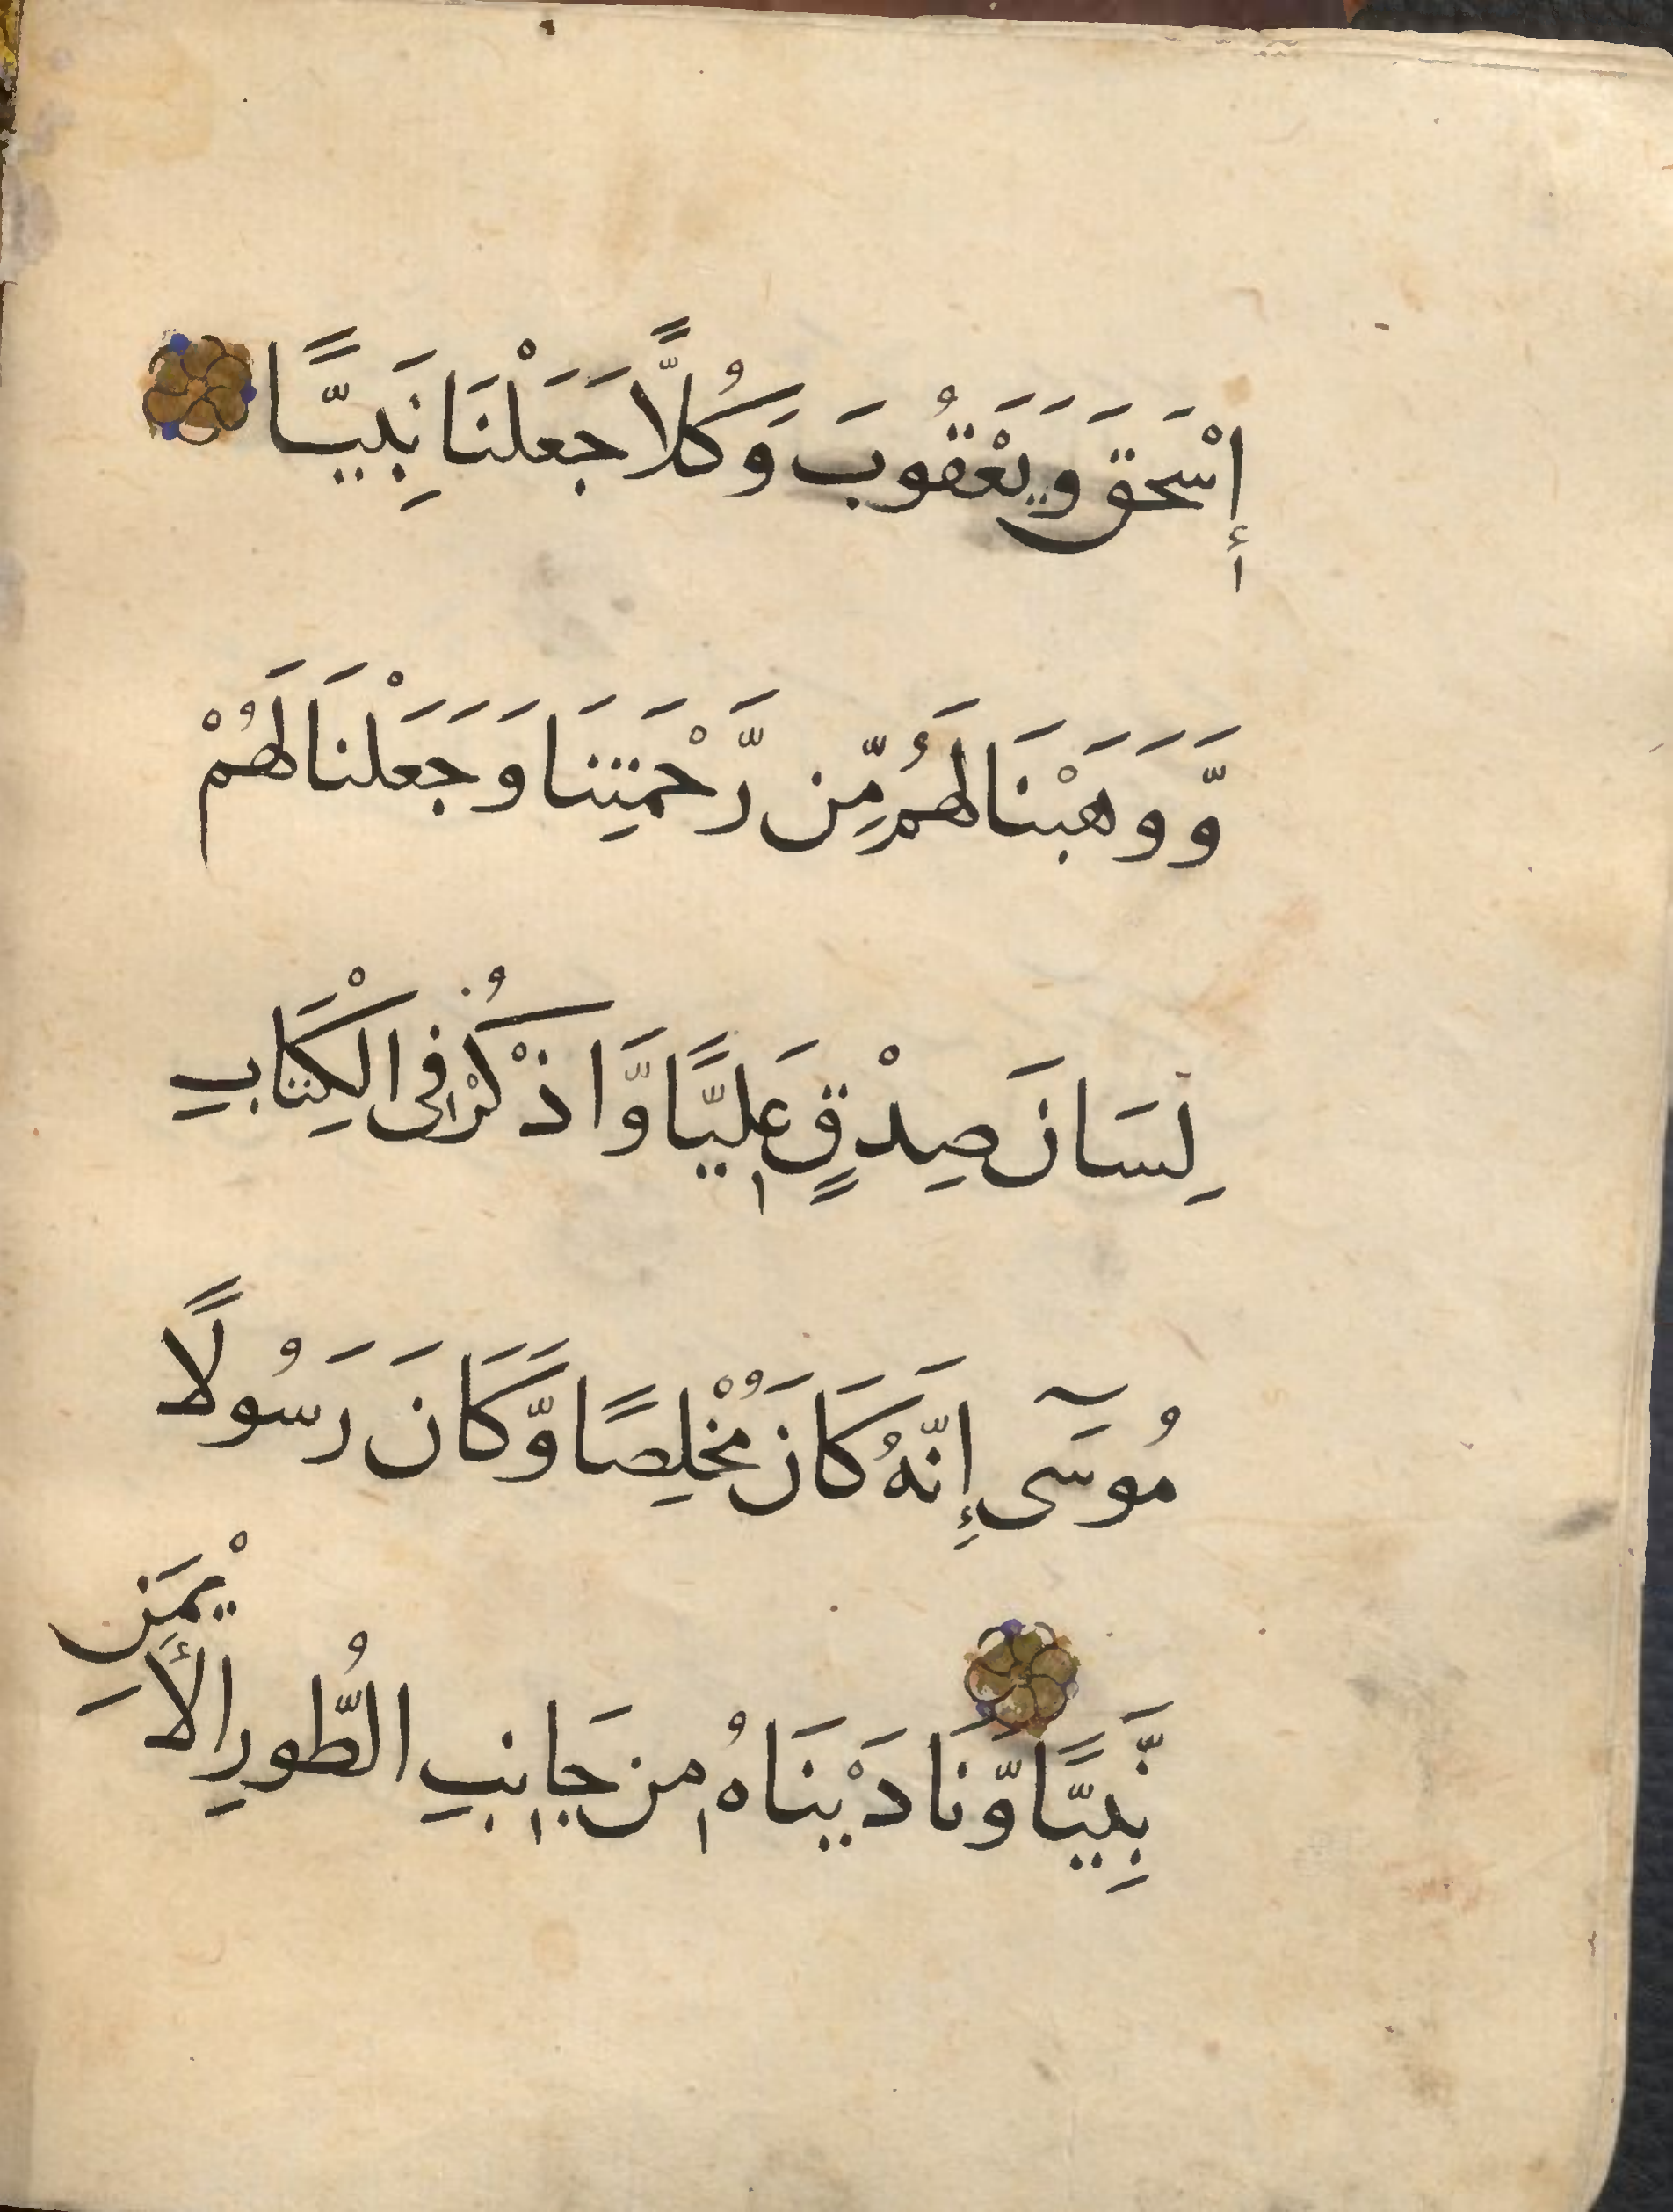 إِسْحَقَ وَيَعْقُوبَ وَكُلًّا جَعَلْنَا نَبِيًّا
وَّوَهَبْنَا لَهُم مِّن رَّحْمَتِنَا وَجَعَلْنَا لَهُمْ
لِسَانَ صِدْقٍ عَلِيًّا وَّاذْكُرْ فِى الْكِتَابِ
مُوسَىٓ إِنَّهُ كَانَ مُخْلِصًا وَّكَانَ رَسُولًا
نَّبِيًّا وَّنَادَيْنَاهُ مِن جَانِبِ الطُّورِ الْأَيْمَنِ